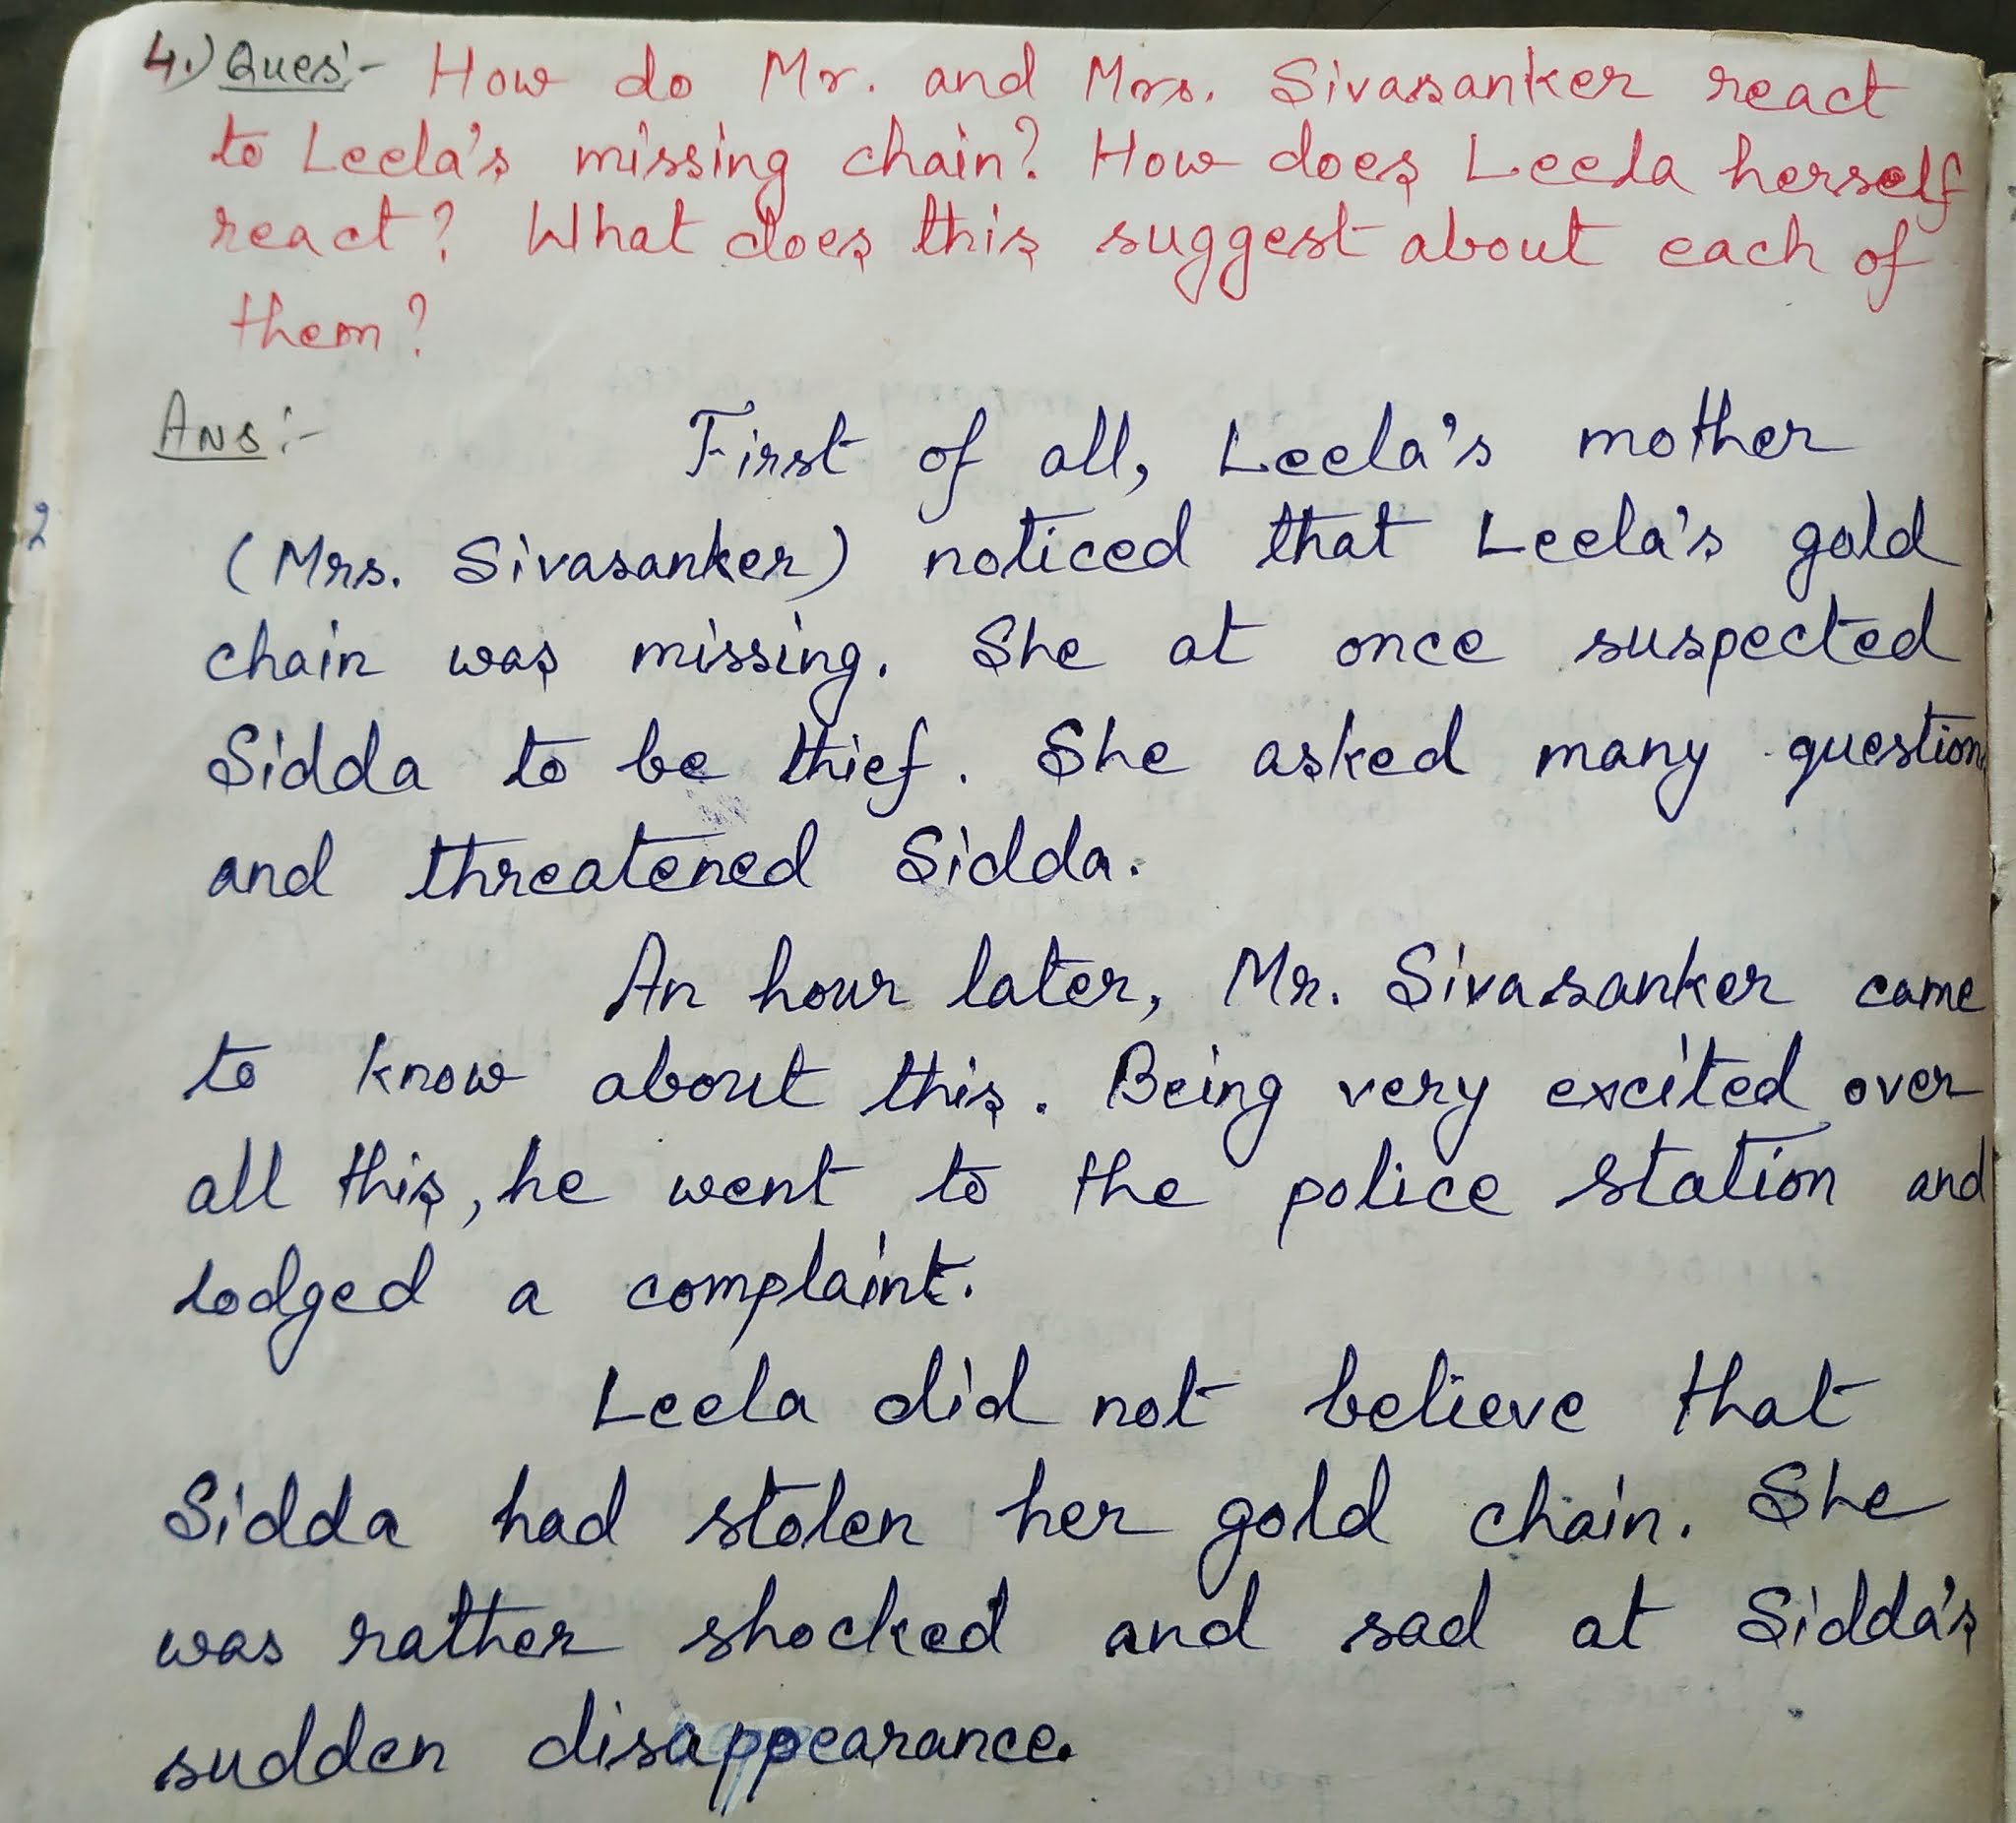 4.) Ques:- How do Mr. and Mrs. Sivasanker react
to Leela's missing chain? How does Leela herself
react? What does this suggest about each of
them?
Ans:- First of all, Leela's mother
(Mrs. Sivasanker) noticed that Leela's gold
chain was missing. She at once suspected
Sidda to be thief. She asked many question
and threatened Sidda.
An hour later, Mr. Sivasanker came
to know about this. Being very excited over
all this, he went to the police station and
lodged a complaint.
Leela did not believe that
Sidda had stolen her gold chain. She
was rather shocked and sad at Sidda's
sudden disappearance.
2